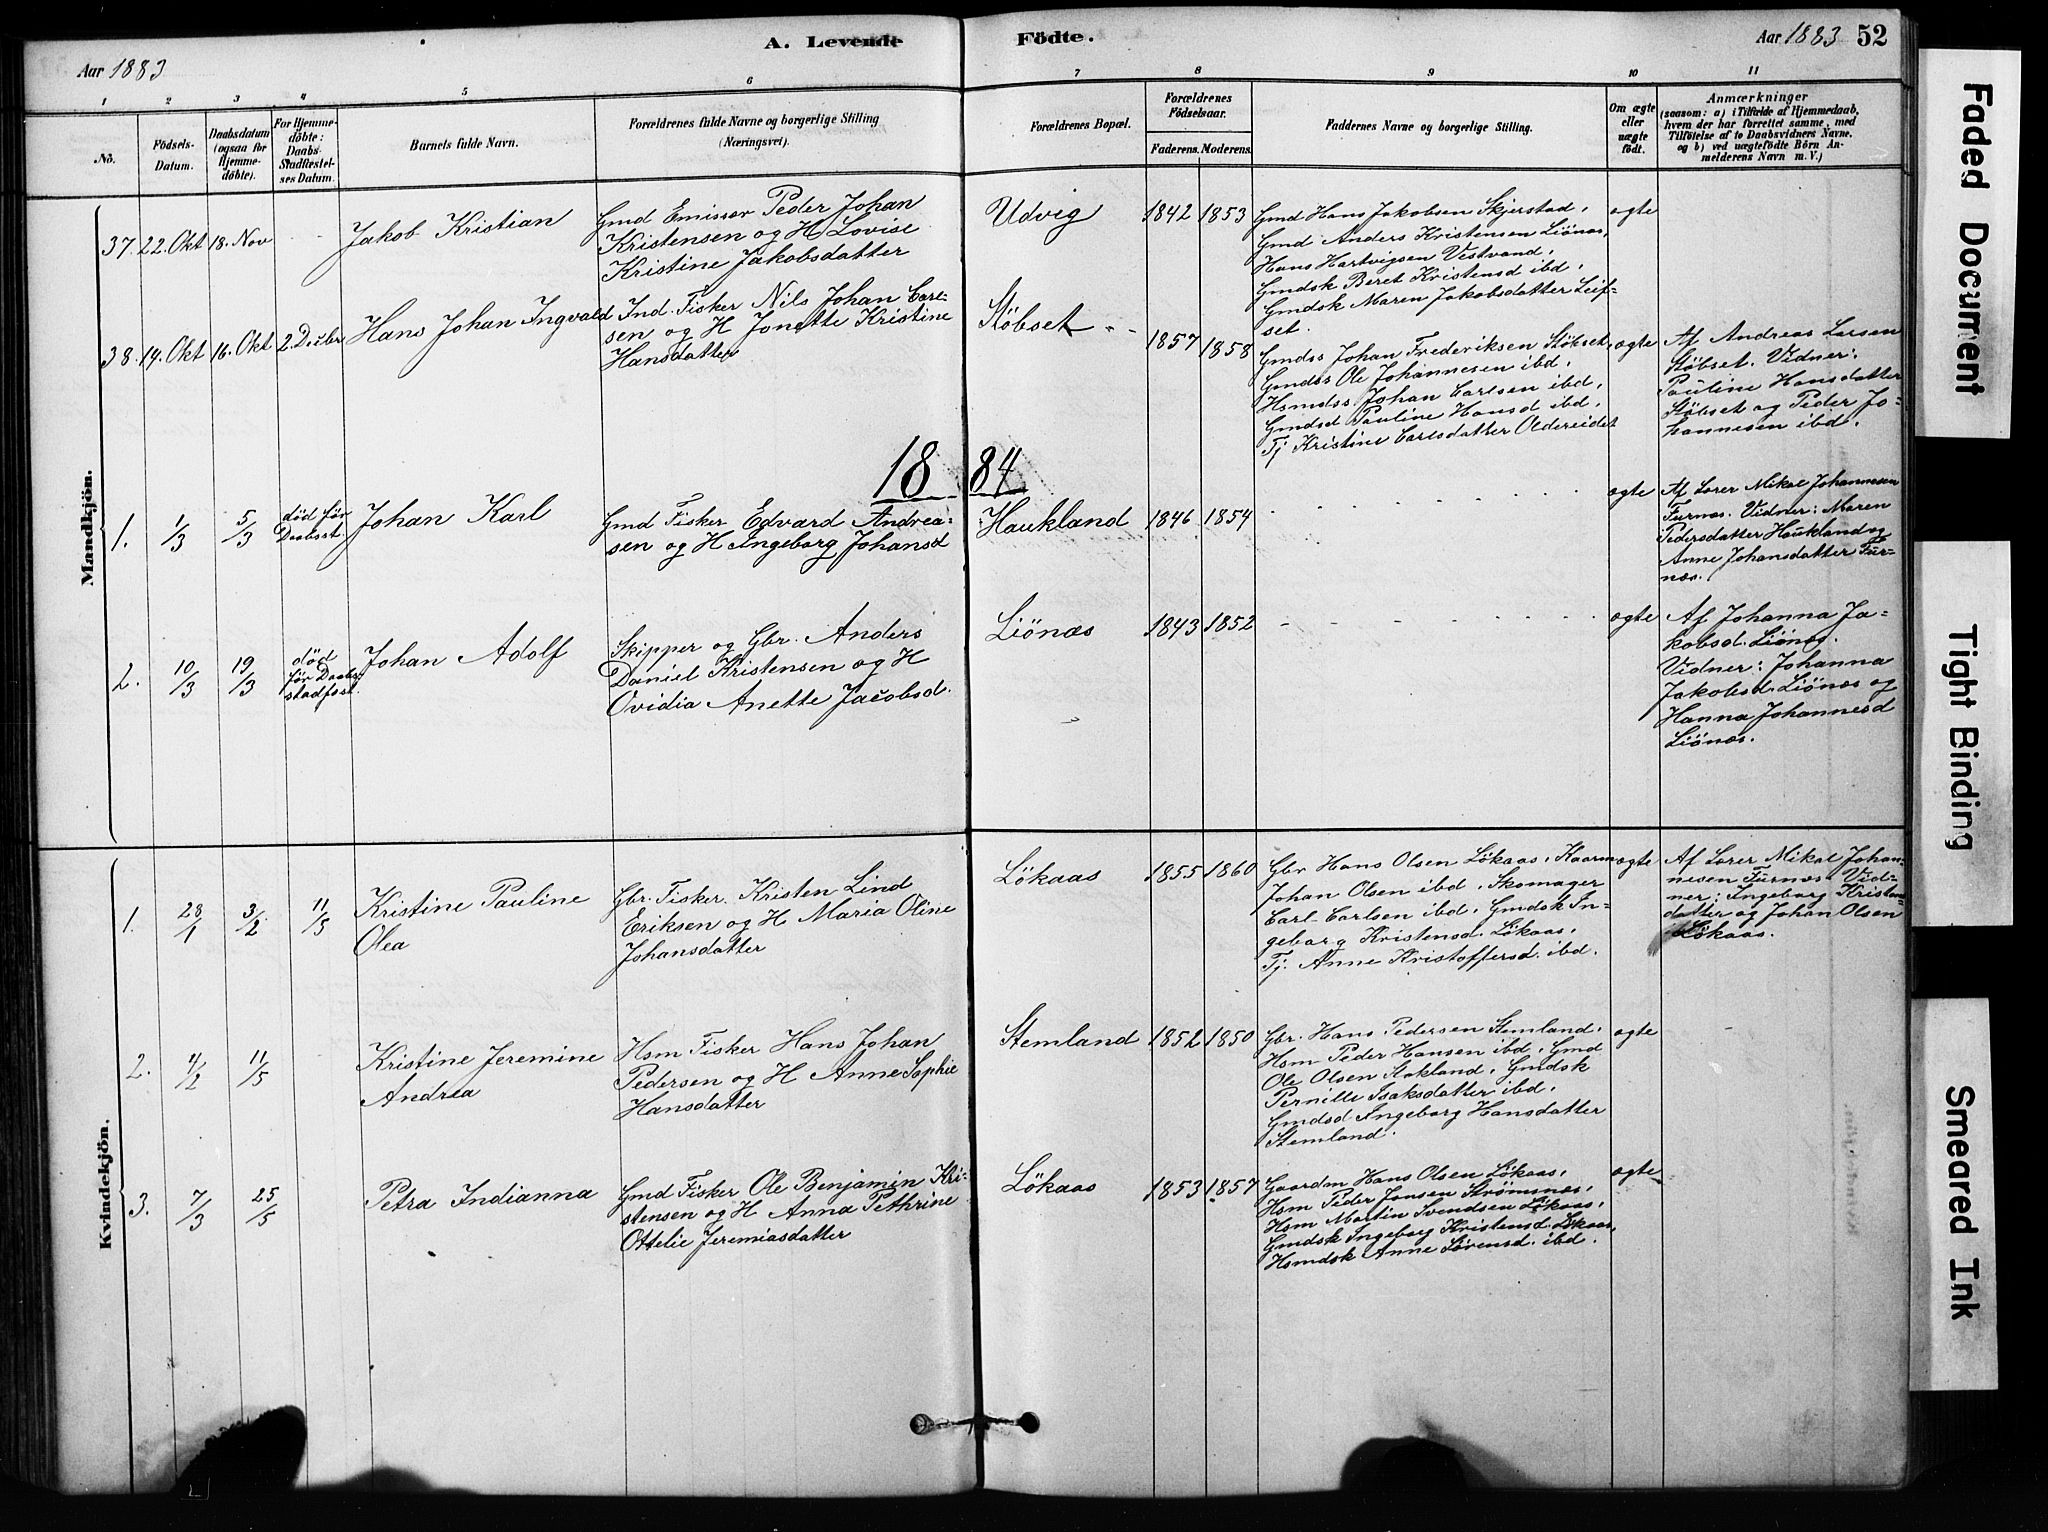 A. Levende
Födte.
Aar 1883
Aar 1883 52
1 2 3 4 5 6 7 8 9 10 11
No.
Födsels-
Datum.
Daabsdatum
(ogsaa for
Hjemme-
döbte).
For Hjemme-
döbte:
Daabs-
Stadfæstel-
ses Datum.
Barnets fulde Navn.
Forældrenes fulde Navne og borgerlige Stilling
(Næringsvei).
Forældrenes Bopæl.
Forældrenes
Födselsaar.
Faderens. Moderens.
Faddernes Navne og borgerlige Stilling.
Om ægte
eller
uægte
födt.
Anmærkninger
(saasom: a) i Tilfælde af Hjemmedaab,
hvem der har forrettet samme, med
Tilföielse af to Daabsvidners Navne,
og b) ved uægtefödte Börn An-
melderens Navn m. V.)
Mandkjön.
37. 22. Okt 18. Nov
Jakob Kristian
Gmd Emissær Peder Johan
Kristensen og H Lovise
Kristine Jakobsdatter
Udvig
1842 1853
Gmd Hans Jakobsen Skjerstad,
Gmd Anders Kristensen Liönæs,
Hans Hartvigsen Vestvand,
Gmdsk Beret Kristensd ibd,
Gmdsk Maren Jakobsdatter Leif-
set.
ægte
38. 14. Okt 16. Okt 2. Decbr
Hans Johan Ingvald
Ind. Fisker Nils Johan Carl-
sen og H Jonette Kristine
Hansdatter
Stöbset
1857 1858
Gmdss Johan Frederiksen Stöbset,
Gmdss Ole Johannesen ibd,
Hsmdss Johan Carlsen ibd,
Gmdsd Pauline Hansd ibd,
Tj Kristine Carlsdatter Oldereidet
ægte
Af Andreas Larsen
Stöbset. Vidner:
Pauline Hansdatter
Stöbset og Peder Jo-
hannesen ibd.
1884
1. 1/3 5/3
död för
Daabsst.
Johan Karl
Gmd Fisker Edvard Andrea-
sen og H Ingeborg Johansd
Haukland
1846 1854
ægte
Af Lærer Mikal Johannesen
Furnæs. Vidner: Maren
Pedersdatter Haukland og
Anne Johansdatter Fur-
næs.
2. 10/3 19/3
död
för Daabs-
stadfæst.
Johan Adolf
Skipper og Gbr. Anders
Daniel Kristensen og H
Ovidia Anette Jacobsd.
Liönæs
1843 1852
ægte
Af Johanna Ja-
kobsd. Liönæs.
Vidner: Johanna
Jakobsd. Liönæs og
Hanna Johannesd
Liönæs.
Kvindekjön.
1. 28/1 3/2 11/5
Kristine Pauline
Olea
Gbr. Fisker. Kristen Lind
Eriksen og H Maria Oline
Johansdatter
Lökaas
1855 1860
Gbr Hans Olsen Lökaas, Kaarm
Johan Olsen ibd, Skomager
Carl Carlsen ibd, Gmdsk In-
geborg Kristensd. Lökaas,
Tj. Anne Kristoffersd. ibd.
ægte
Af Lærer Mikal Johan-
nesen Furnæs. Vid-
ner: Ingeborg Kristens-
datter og Johan Olsen
Lökaas.
2. 4/2 11/5
Kristine Jeremine
Andrea
Hsm Fisker Hans Johan
Pedersen og H Anne Sophie
Hansdatter
Stemland
1852 1850
Gbr. Hans Pedersen Stemland,
Hsm Peder Hansen ibd, Gmd
Ole Olsen Stokland, Gmdsk
Pernille Isaksdatter ibd,
Gmdsd Ingeborg Hansdatter
Stemland.
ægte
3. 7/3 25/5
Petra Indianna
Gmd Fisker Ole Benjamin Kri-
stensen og H Anna Pethrine
Ottelie Jeremiasdatter
Lökaas
1853 1857
Gaardm Hans Olsen Lökaas,
Hsm Peder Jonsen Strömsnæs,
Hsm Martin Svendsen Lökaas,
Gmdsk Ingeborg Kristensd. Lökaas,
Hsmdsk Anne Sörensd. ibd.
ægte
Faded Document
Tight Binding
Smeared Ink